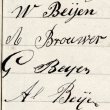 W Beijen
A Brouwer
G Beijen
A Beijen